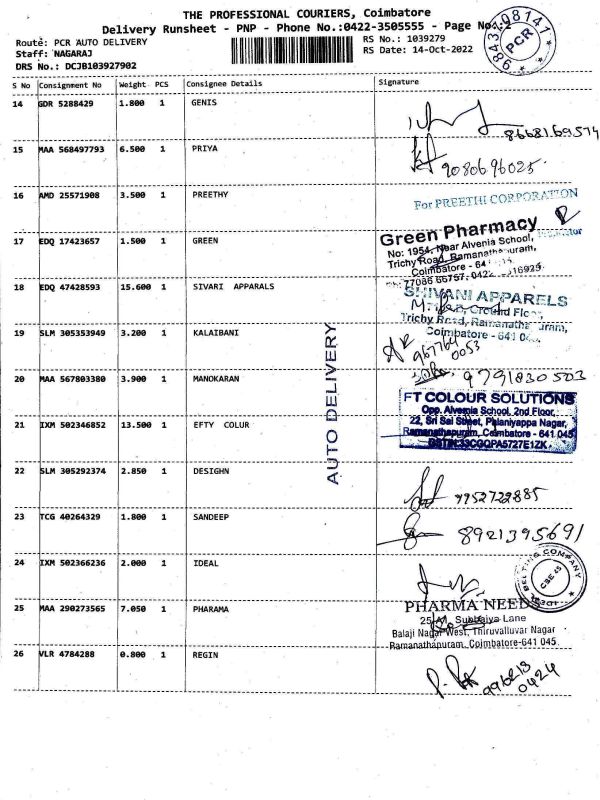 THE PROFESSIONAL COURIERS, Coimbatore
Delivery Runsheet - PNP - Phone No.:0422-3505555 - Page No.:2
Route: PCR AUTO DELIVERY
Staff: NAGARAJ
DRS No.: DCJB103927902
RS No.: 1039279
RS Date: 14-Oct-2022
PCR
S No Consignment No Weight PCS Consignee Details Signature
14 GDR 5288429 1.800 1 GENIS
8668169574
15 MAA 568497793 6.500 1 PRIYA
9080696025
16 AMD 25571908 3.500 1 PREETHY
For PREETHI CORPORATION
17 EDQ 17423657 1.500 1 GREEN
Green Pharmacy
No: 1954, Near Alvenia School,
Trichy Road, Ramanathapuram,
Coimbatore - 64
18 EDQ 47428593 15.600 1 SIVARI APPARALS
SHIVANI APPARELS
Ground Floor
Trichy Road, Ramanathapuram,
Coimbatore - 641
19 SLM 305353949 3.200 1 KALAIBANI
967764
0053
20 MAA 567803380 3.900 1 MANOKARAN
9791830503
AUTO DELIVERY
21 IXM 502346852 13.500 1 EFTY COLUR
FT COLOUR SOLUTIONS
Opp. Alvernia School, 2nd Floor,
22, Sri Sai Street, Palaniyappa Nagar,
Ramanathapuram, Coimbatore - 641 045
22 SLM 305292374 2.850 1 DESIGHN
9952722885
23 TCG 40264329 1.800 1 SANDEEP
8921395691
24 IXM 502366236 2.000 1 IDEAL
IDEAL BELTING COMPANY
CBE-45
25 MAA 290273565 7.050 1 PHARAMA
PHARMA NEEDS
Subbaiya Lane
Balaji Nagar West, Thiruvalluvar Nagar
Ramanathapuram, Coimbatore-641 045
26 VLR 4784288 0.800 1 REGIN
996213
0424